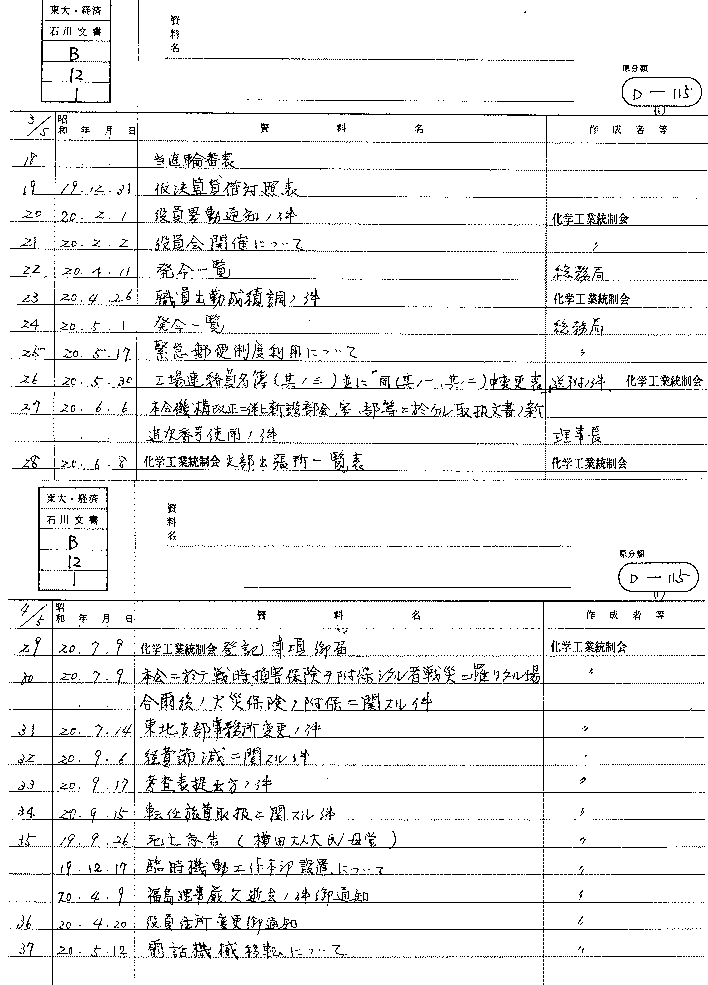 東大・経済
石川文書
B
12
1
資料名
原分類
D－115
3/5 昭和 年 月 日 資料名 作成者等
18 当直輪番表
19 19.12.31 仮決算貸借対照表
20 20.2.1 役員異動通知ノ件 化学工業統制会
21 20.2.2 役員会開催について 〃
22 20.4.11 発令一覧 総務局
23 20.4.26 職員出勤成績調ノ件 化学工業統制会
24 20.5.1 発令一覧 総務局
25 20.5.17 緊急郵便制度利用について 〃
26 20.5.30 工場連務員名簿(其ノ二)並に同(其ノ一、其ノ二)中変更表送附ノ件 化学工業統制会
27 20.6.6 本会機構改正ニ伴ヒ新設部会、室、部等ニ於ケル取扱文書ノ新
追次番号使用ノ件 理事長
28 20.6.8 化学工業統制会支部出張所一覧表 化学工業統制会
東大・経済
石川文書
B
12
1
資料名
原分類
D－115
4/5 昭和 年 月 日 資料名 作成者等
29 20.7.9 化学工業統制会登記事項御届 化学工業統制会
30 20.7.9 本会ニ於テ戦時損害保険ヲ附保シタル者戦災ニ罹リタル場 〃
合爾後ノ火災保険ノ附保ニ関スル件
31 20.7.14 東北支部事務所変更ノ件 〃
32 20.9.6 経費節減ニ関スル件 〃
33 20.9.17 考査表提出方ノ件 〃
34 20.9.15 転任旅費取扱ニ関スル件 〃
35 19.9.26 死亡急告 (横田 氏 母堂) 〃
19.12.17 臨時機動工作本部設置について 〃
20.4.9 福島理事厳父逝去ノ件御通知 〃
36 20.4.20 役員住所変更御通知 〃
37 20.5.12 電話機械移転について 〃